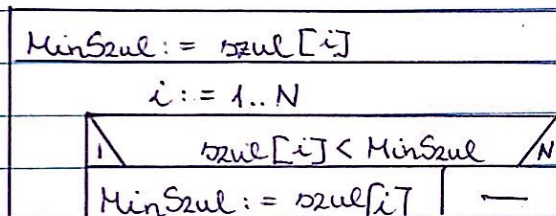 MinSzul := szul[i]
i := 1..N
I szul[i] < MinSzul N
MinSzul := szul[i] —